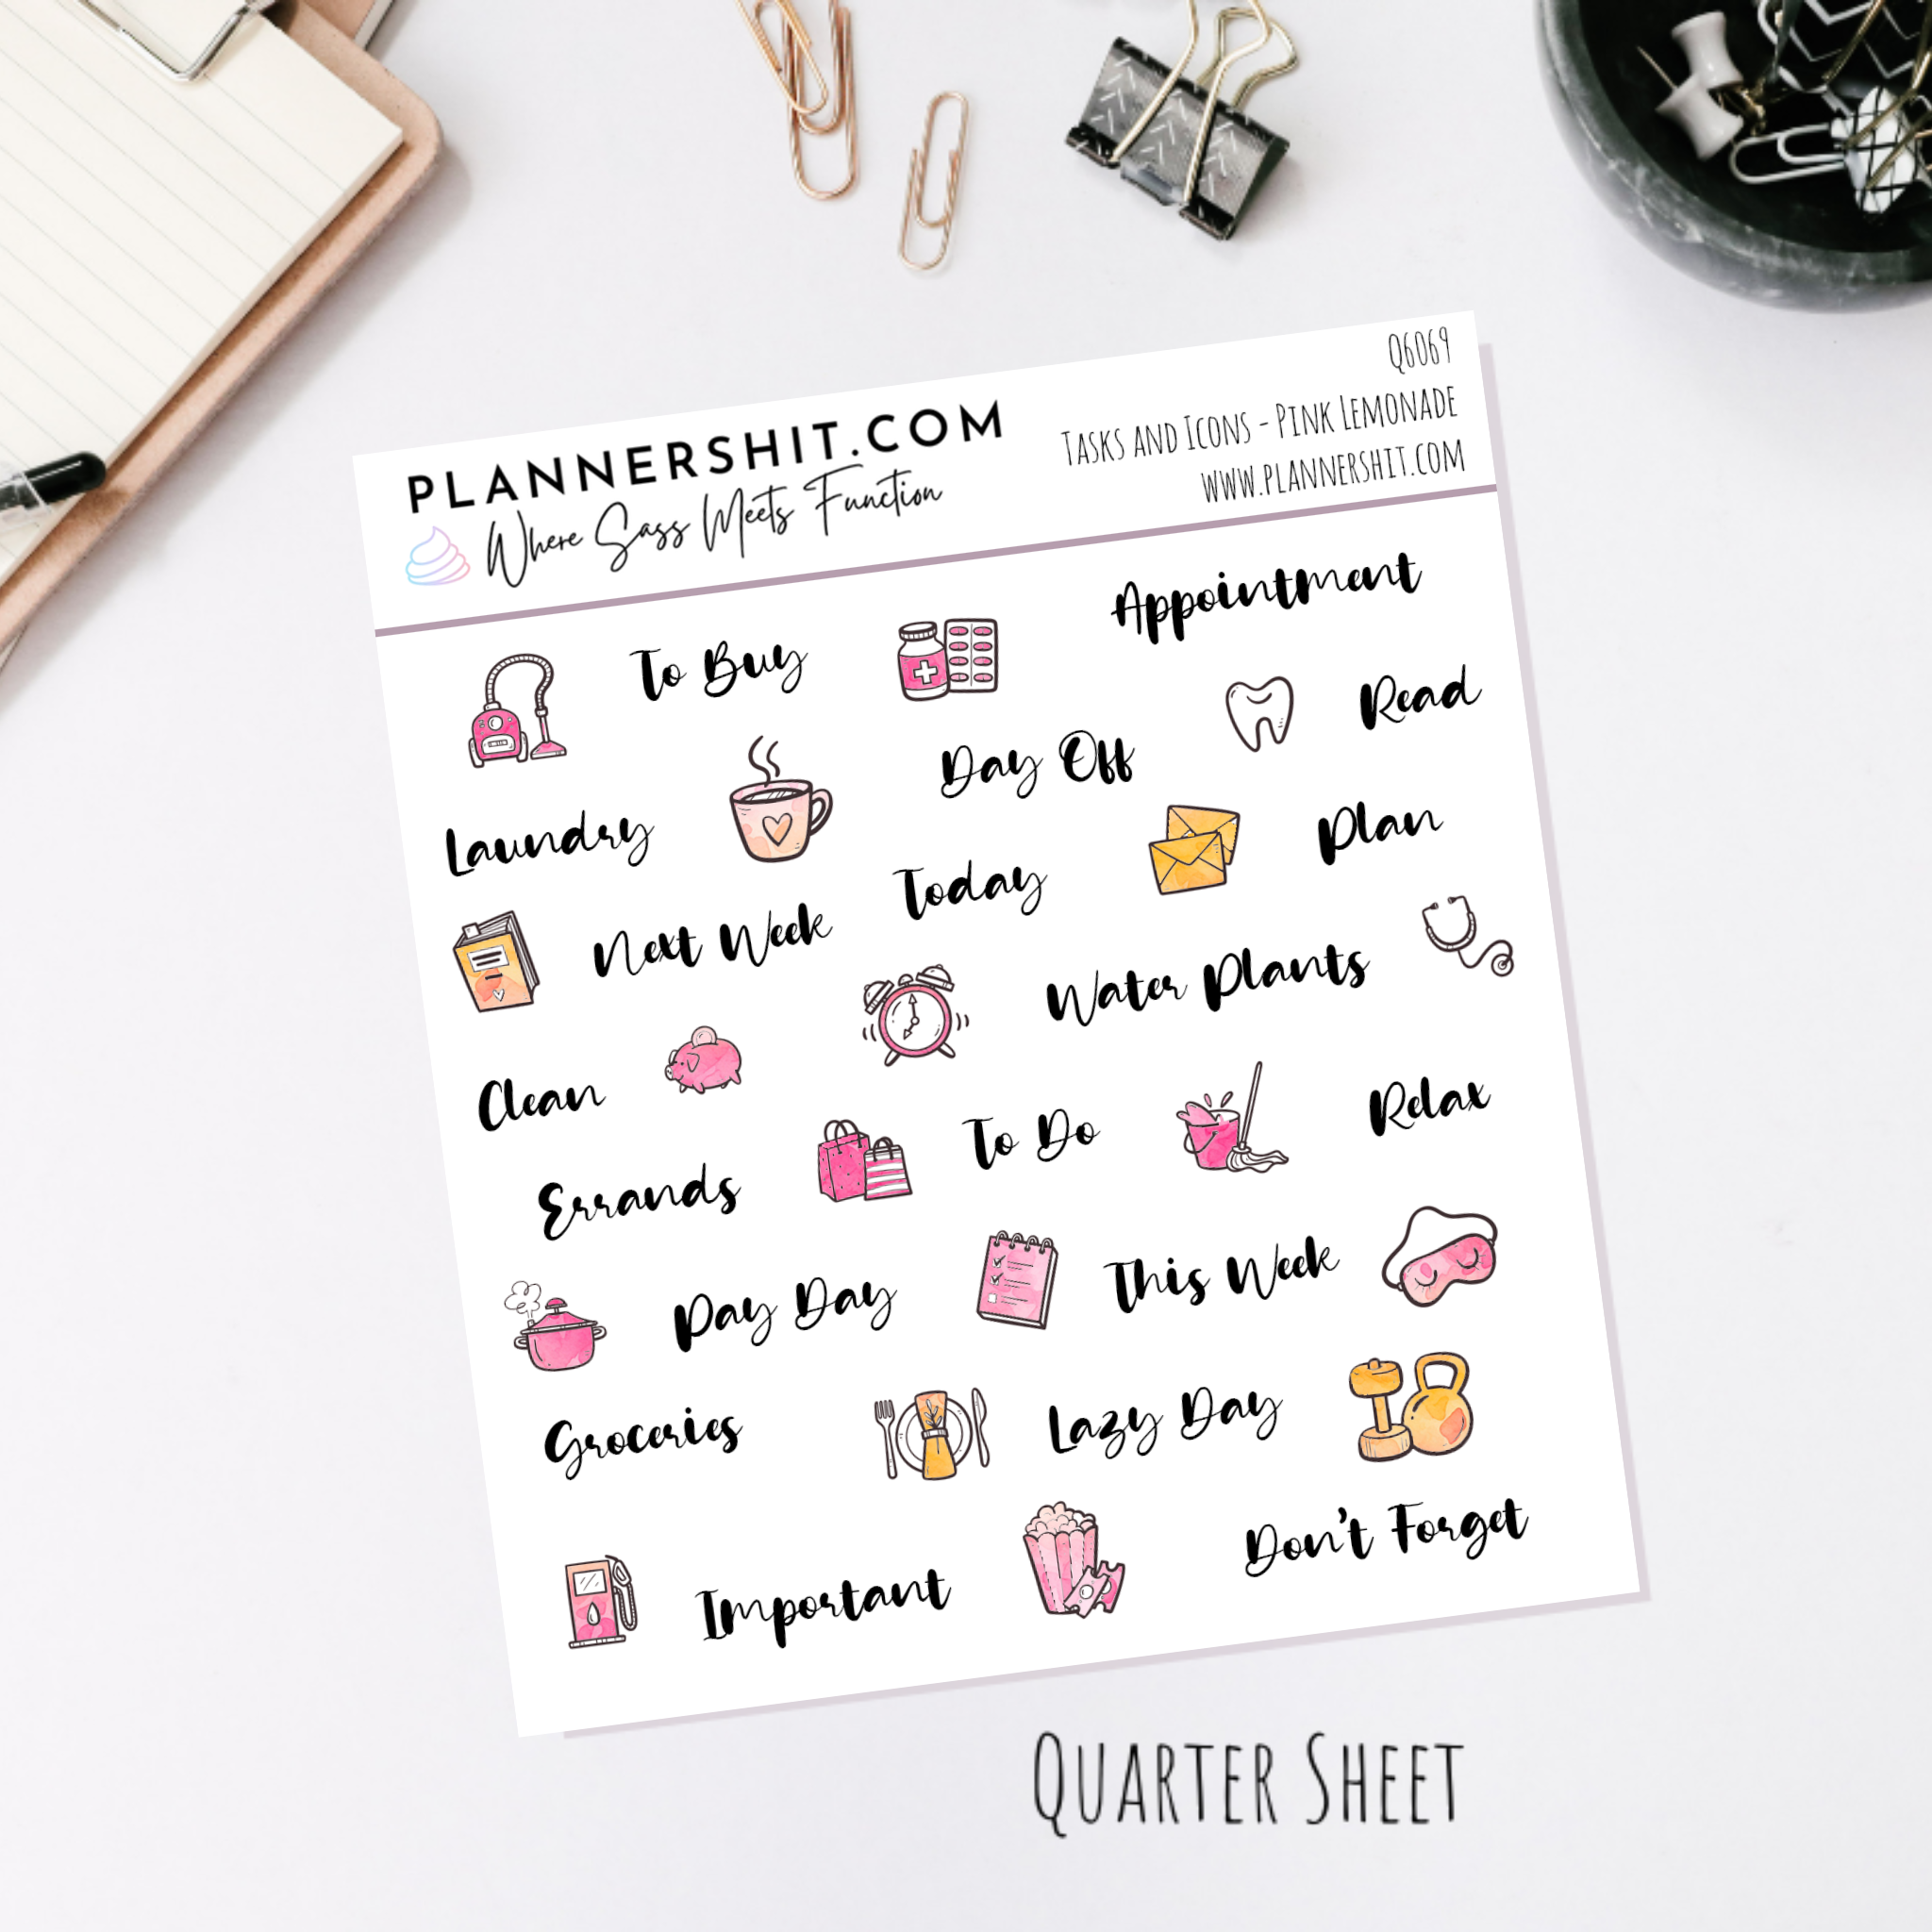 Q6069
PLANNERSHIT.COM
Tasks and Icons - Pink Lemonade
Where Sass Meets Function
www.plannershit.com
To Buy
Appointment
Read
Laundry
Day Off
Plan
Next Week
Today
Water Plants
Clean
To Do
Relax
Errands
Pay Day
This Week
Groceries
Lazy Day
Important
Don't Forget
Quarter Sheet